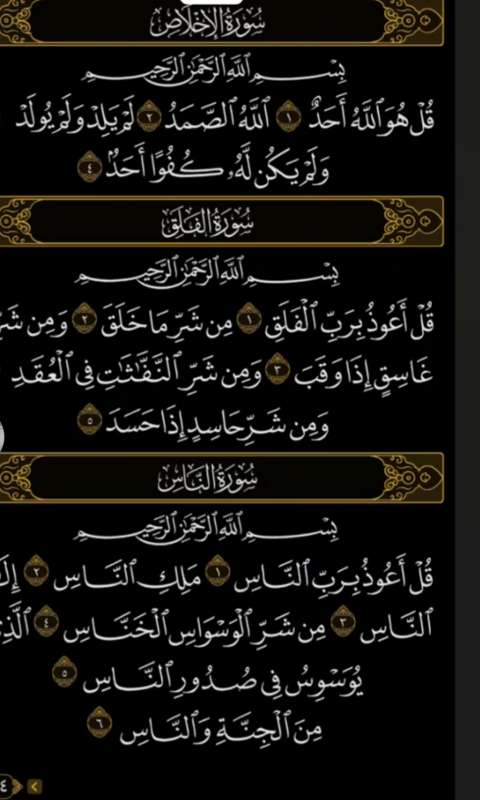 سُورَةُ الإِخْلَاصِ
بِسْمِ ٱللَّهِ ٱلرَّحْمَٰنِ ٱلرَّحِيمِ
قُلْ هُوَ ٱللَّهُ أَحَدٌ ١ ٱللَّهُ ٱلصَّمَدُ ٢ لَمْ يَلِدْ وَلَمْ يُولَدْ
وَلَمْ يَكُن لَّهُۥ كُفُوًا أَحَدٌۢ ٤
سُورَةُ الفَلَقِ
بِسْمِ ٱللَّهِ ٱلرَّحْمَٰنِ ٱلرَّحِيمِ
قُلْ أَعُوذُ بِرَبِّ ٱلْفَلَقِ ١ مِن شَرِّ مَا خَلَقَ ٢ وَمِن
غَاسِقٍ إِذَا وَقَبَ ٣ وَمِن شَرِّ ٱلنَّفَّٰثَٰتِ فِى ٱلْعُقَدِ
وَمِن شَرِّ حَاسِدٍ إِذَا حَسَدَ ٥
سُورَةُ النَّاسِ
بِسْمِ ٱللَّهِ ٱلرَّحْمَٰنِ ٱلرَّحِيمِ
قُلْ أَعُوذُ بِرَبِّ ٱلنَّاسِ ١ مَلِكِ ٱلنَّاسِ ٢
ٱلنَّاسِ ٣ مِن شَرِّ ٱلْوَسْوَاسِ ٱلْخَنَّاسِ ٤
يُوَسْوِسُ فِى صُدُورِ ٱلنَّاسِ ٥
مِنَ ٱلْجِنَّةِ وَٱلنَّاسِ ٦